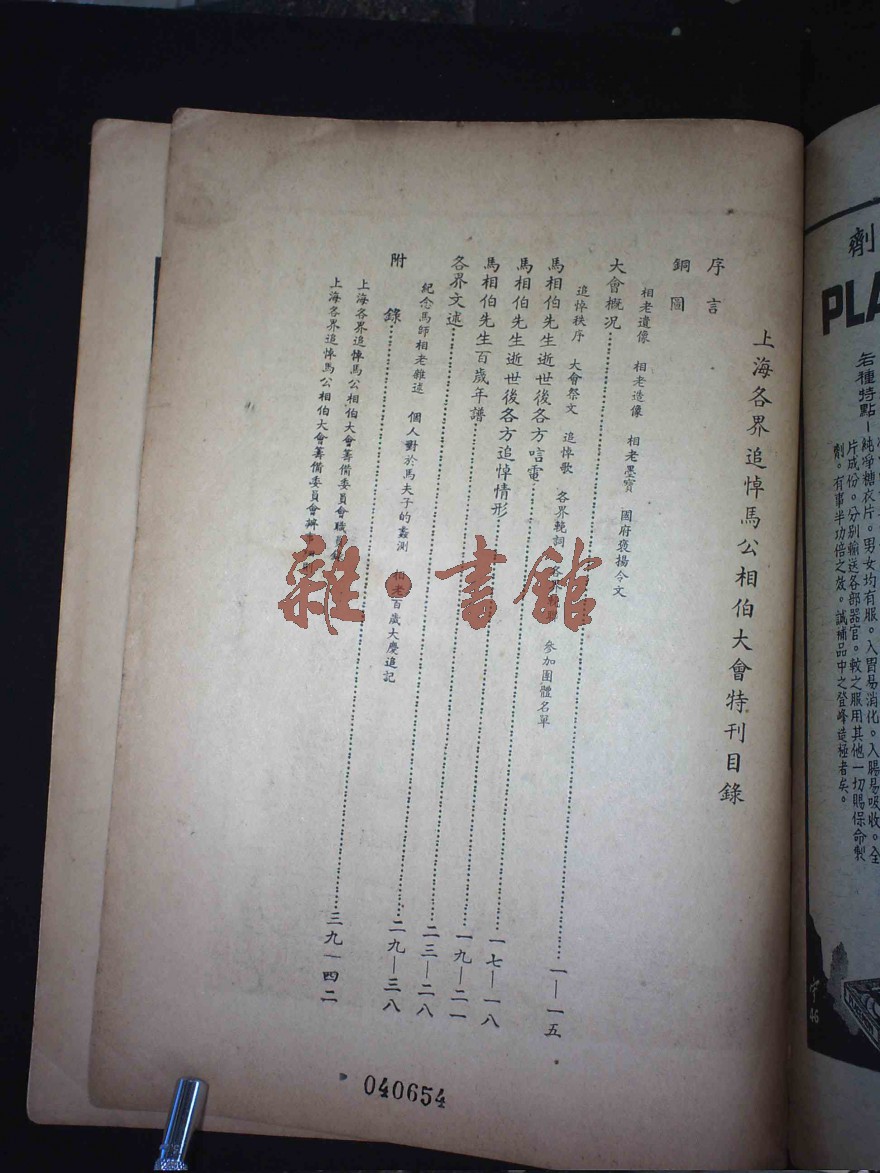 劑
PLA
各種特點—純淨糖衣片。男女均有服。入胃易消化。入腸易吸收。全
片成份。分别輸送各部器官。較之服用其他一切賜保命製
劑。有事半功倍之效。誠補品中之登峰造極者矣。
46
上海各界追悼馬公相伯大會特刊目錄
序言
銅圖
相老遺像 相老造像 相老墨寶 國府褒揚令文
大會概况……一—一五
追悼秩序 大會祭文 追悼歌 各界輓詞 各界 參加團體名單
馬相伯先生逝世後各方唁電……一七—一八
馬相伯先生逝世後各方追悼情形……一九—二一
馬相伯先生百歲年譜……二三—二八
各界文述……二九—三八
紀念馬師相老雜述 個人對於馬夫子的蠡測 相老百歲大慶追記
附錄……三九—四二
上海各界追悼馬公相伯大會籌備委員會職員
上海各界追悼馬公相伯大會籌備委員會辦
040654
雜·書館